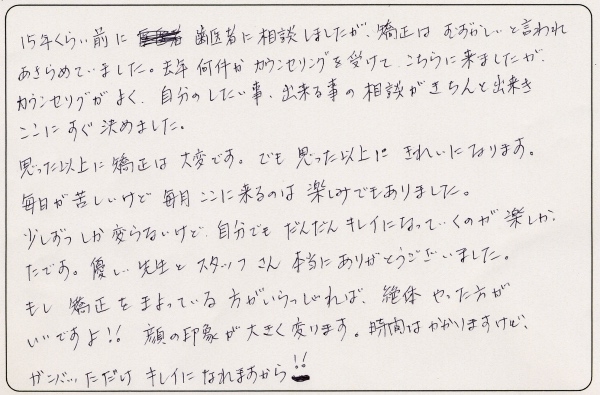 15年くらい前に 歯医者に相談しましたが、矯正は むずかしいと言われ
あきらめていました。去年 何件か カウンセリングを受けて、こちらに来ましたが、
カウンセリグがよく、自分のしたい事、出来る事の相談がきちんと出来き
ここにすぐ決めました。
思った以上に矯正は大変です。でも 思った以上に きれいになります。
毎日が苦しいけど 毎月ここに来るのは 楽しみでもありました。
少しずつしか変らないけど、自分でも だんだん キレイになっていくのが 楽しか
たです。優しい先生と スタッフさん 本当にありがとうございました。
もし 矯正をまよっている 方がいらっしゃれば、絶体 やった方が
いいですよ!! 顔の印象が大きく変ります。時間はかかりますけど、
ガンバッただけ キレイに なれますから!!